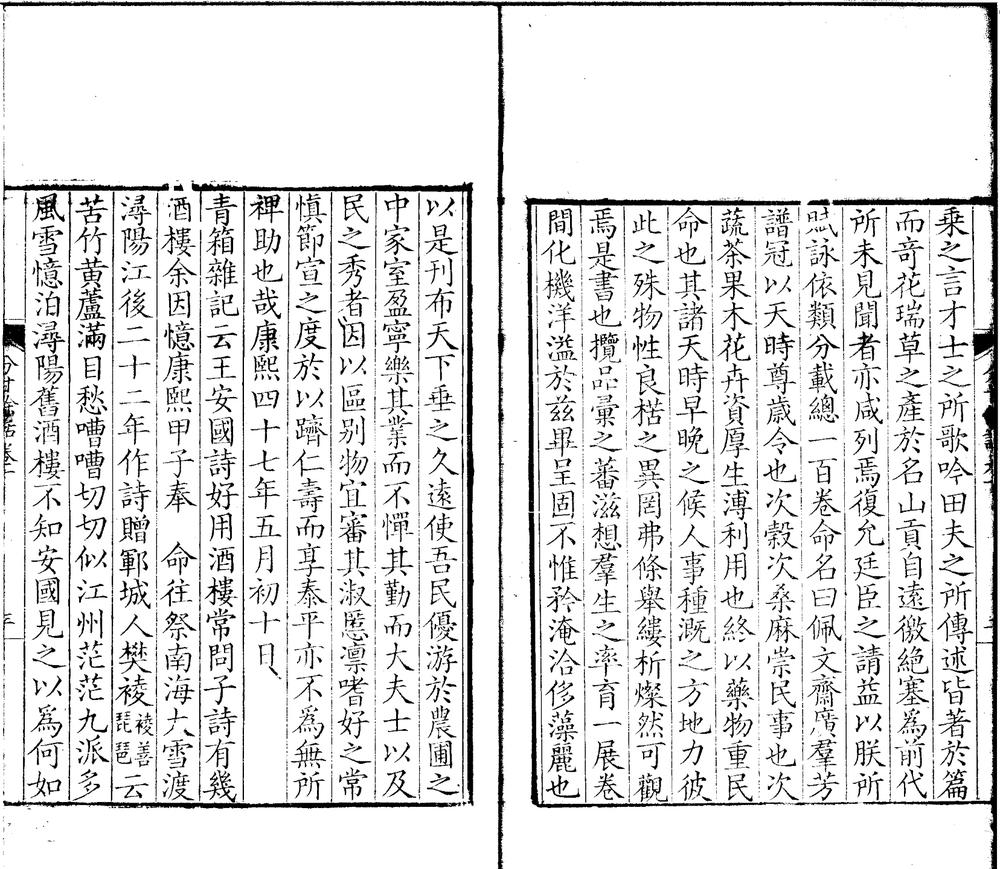 乗之言才士之所歌吟田夫之所傳述皆著於篇
而竒花瑞草之產於名山貢自遠徼絶塞為前代
所未見聞者亦咸列焉復允廷臣之請益以朕所
賦詠依類分載總一百卷命名曰佩文齋廣羣芳
譜冠以天時尊歳令也次穀次桑麻崇民事也次
蔬茶果木花卉資厚生溥利用也終以藥物重民
命也其諸天時早晚之候人事種溉之方地力彼
此之殊物性良楛之異罔弗條舉縷析燦然可觀
焉是書也攬品彚之蕃滋想羣生之率育一展卷
間化機洋溢於兹畢呈固不惟矜淹洽侈藻麗也
以是刊布天下垂之久遠使吾民優游於農圃之
中家室盈寧樂其業而不憚其勤而大夫士以及
民之秀者因以區别物宜審其淑慝凛嗜好之常
愼節宣之度於以躋仁壽而享泰平亦不爲無所
裨助也哉康熙四十七年五月初十日
青箱雜記云王安國詩好用酒樓常問子詩有幾
酒樓余因憶康熙甲子奉　命往祭南海大雪渡
潯陽江後二十二年作詩贈鄆城人樊祾祾善琵琶云
苦竹黄蘆滿目愁嘈嘈切切似江州茫茫九派多
風雪憶泊潯陽舊酒樓不知安國見之以爲何如
分甘餘話卷二